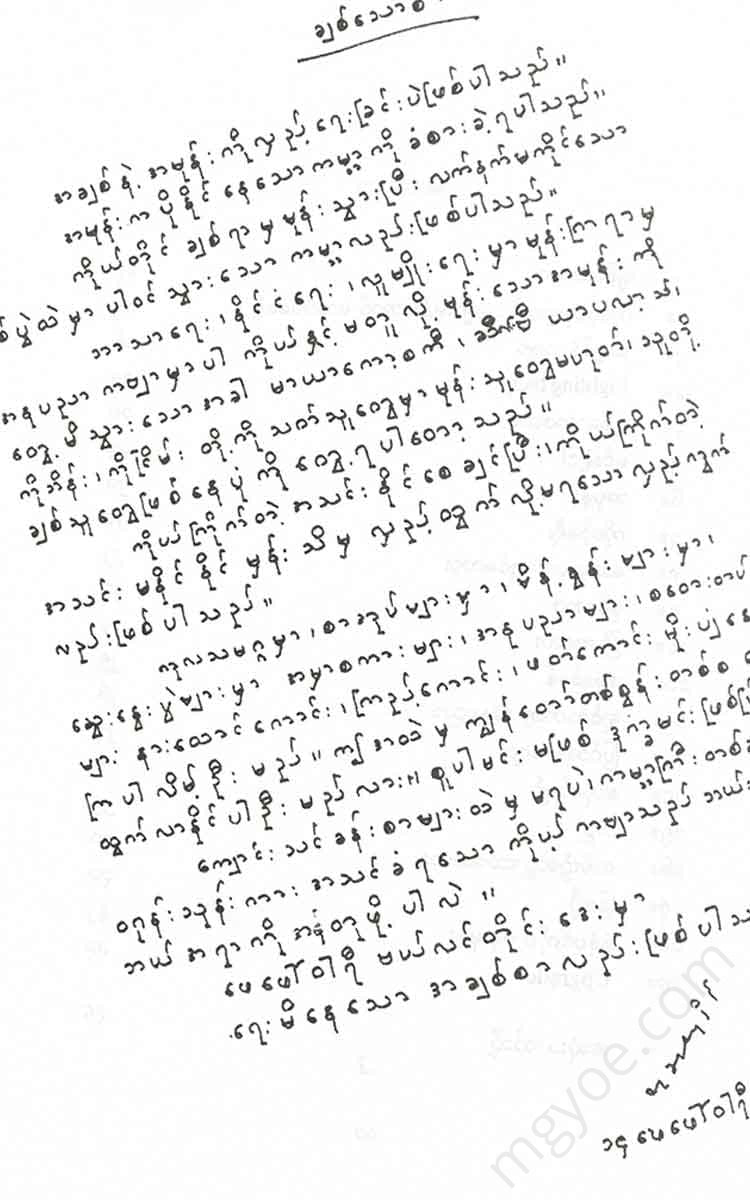 ချစ်သော
အချစ်နဲ့ အမုန်းကိုလှည့်ရေးခြင်းပဲဖြစ်ပါသည်။
အမုန်းကပိုနိုင်နေသောကမ္ဘာကို ခံစားခဲ့ရပါသည်။
ကိုယ်တိုင် ချစ်ရာမှမုန်းသွားပြီး လက်နက်မကိုင်သော
စ်ပွဲထဲမှာပါဝင်သွားသောကမ္ဘာလည်းဖြစ်ပါသည်။
ဘာသာရေး၊ နိုင်ငံရေး၊ လူမျိုးရေးမှာမုန်းကြရာမှ
အနုပညာကဗျာမှာပါ ကိုယ်နှင့်မတူလို့မုန်းသောအမုန်းကို
တွေ့မိသွားသောအခါ မာယာကော့စကီ၊ ယာပလာ့သ်၊
ကိုဘိန်း၊ ကိုငြိမ်းတို့ကိုသတ်သူတွေမှာမုန်းသူတွေမဟုတ်၊ သူတို့
ချစ်သူတွေဖြစ်နေပုံကိုတွေ့ရပါတော့သည်။
ကိုယ်ကြိုက်တဲ့အသင်းနိုင်စေချင်ပြီး၊ ကိုယ်ကြိုက်တဲ့
အသင်းမနိုင်နိုင်မှန်းသိမှလှည့်ထွက်လို့မရသောလှည့်ကွက်
လည်းဖြစ်ပါသည်။
ကုလသမဂ္ဂမှာ၊ စာအုပ်များမှာ၊ မိန့်ခွန်းများမှာ၊
ဆွေးနွေးပွဲများမှာ အမှာစကားများ၊ အနုပညာများ၊ စတေးတပ်
များ နားထောင်ကောင်း၊ ကြည့်ကောင်း၊ ဖတ်ကောင်း
ကြပါလိမ့်ဦးမည်။ ကျွန်တော်တစ်စွန်းတစ်စ
ထွက်လာနိုင်ပါဦးမည်လား။ ပူပါမင်းမဖြစ် ဒုက္ခမင်း
ကျောင်းသင်ခန်းစာများထဲမှမရပဲ၊ ကမ္ဘာကြီး
ဝရုန်းသုန်းကားအသင်ခံရသောကိုယ့်ကဗျာသည် ဘယ်
ဘယ်အရာကိုအန်တုဖို့ပါလဲ။
ဖေဖော်ဝါရီ ဗယ်လင်တိုင်းဒေးမှာ
ရေးမိနေသောအချစ်စာလည်းဖြစ်ပါသ
၁၄ ဖေဖော်ဝါရီ
mgyoe.com